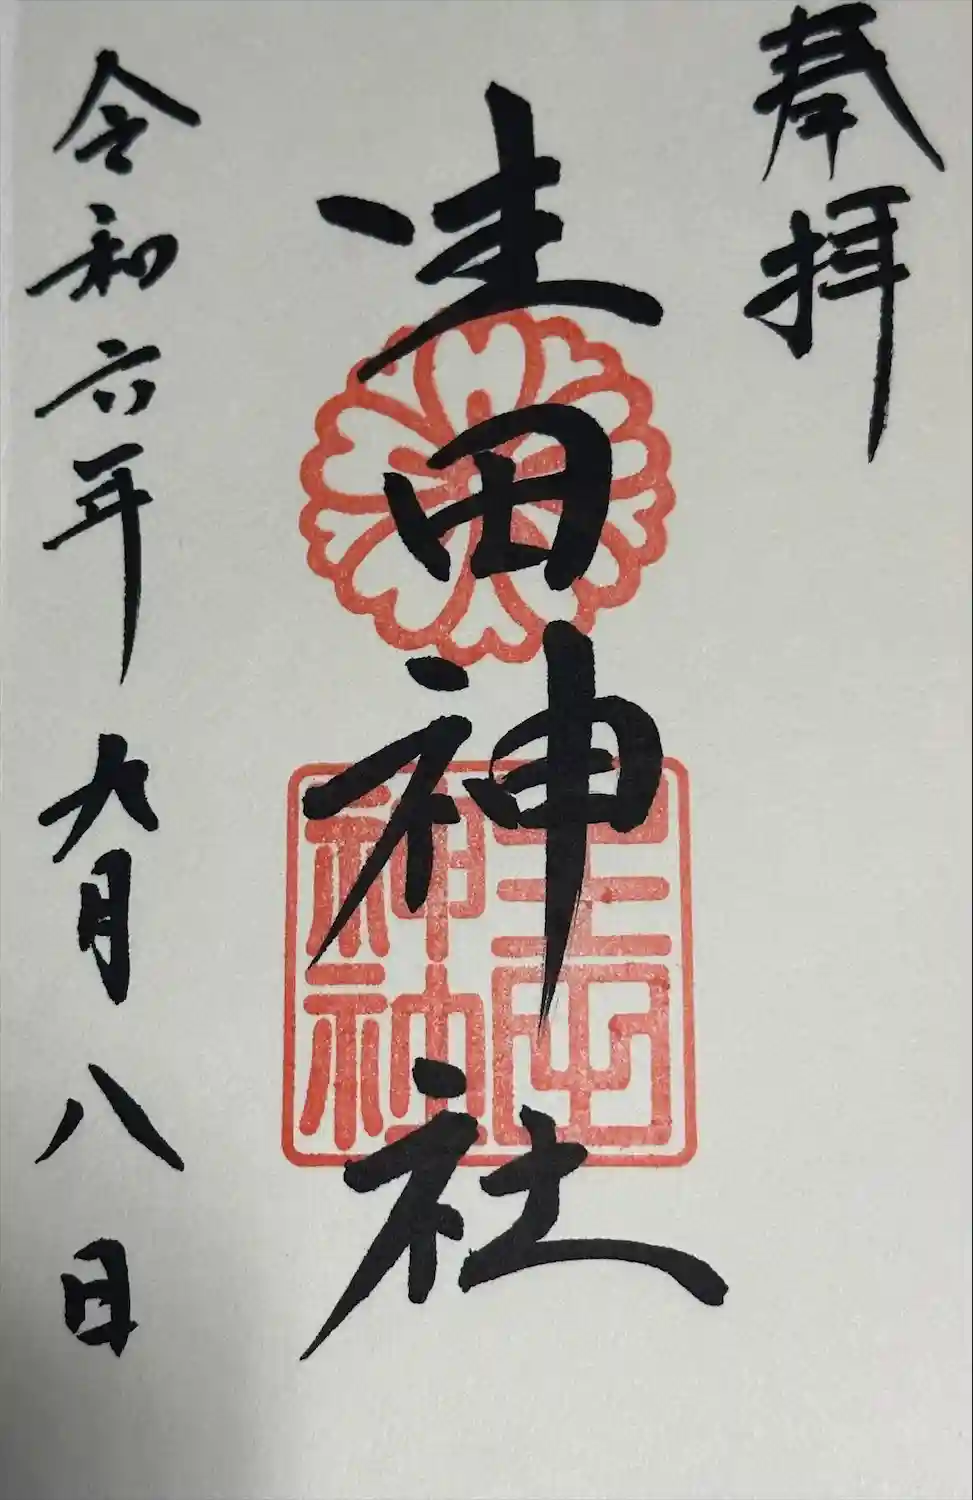 奉拝
生田神社
令和六年九月八日
生田神社